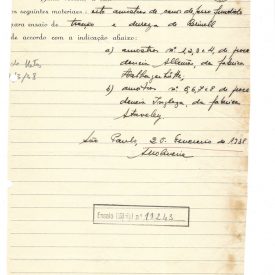 os seguintes materiais: oito amostras de canos de ferro fundido
para ensaio de tracção e dureza de Brinell
de acordo com a indicação abaixo:
a) amostras nº 1,2,3 e 4 de proce
dencia Allemã, da fabrica
b) amostras nº 5,6,7 e 8 de proce
dencia Ingleza, da fabrica
Staveley.
São Paulo, 25 Fevereiro de 1938
Ensaio (Série) nº 11243